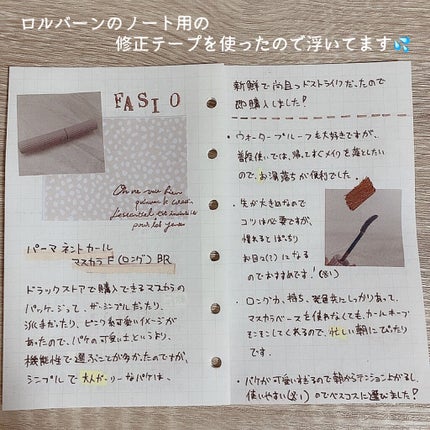 ロルバーンのノート用の
修正テープを使ったので浮いてます💦
FASIO
パーマネントカール
マスカラF(ロング) BR
ドラックストアで購入できるマスカラの
パッケージって、ザ・シンプルだったり、
派手だったり、ピンク系可愛いイメージが
あったので、パケの可愛さというより、
機能性で選ぶことが多かったのですが、
シンプルで大人ガーリーなパケは、
新鮮で尚且つドストライクだったので
即購入しました!
・ウォータープルーフも大好きですが、
普段使いでは、帰ってすぐメイクを落としたい
ので、お湯落ちが便利でした。
・先が大きめなので
コツは必要ですが、
慣れるとぱっちり
お目々に なる
のでおすすめです!
・ロング力、持ち、発色共にしっかりあって、
マスカラベースを使わなくても、カールキープ
もそこそこしてくれるので、忙しい朝にぴったり
です。
・パケが可愛いすぎるので朝からテンション上がるし、
使いやすい のでベスコスに選びました!